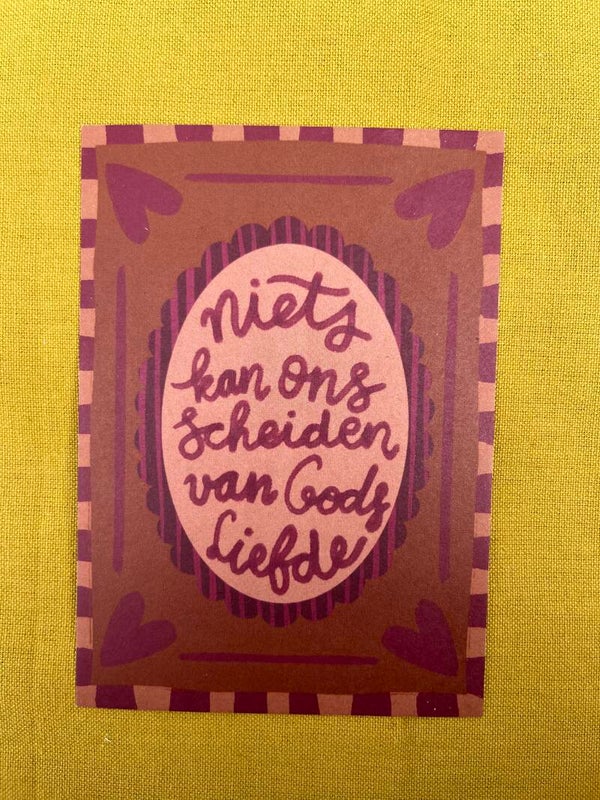 niets
kan ons
scheiden
van Gods
Liefde